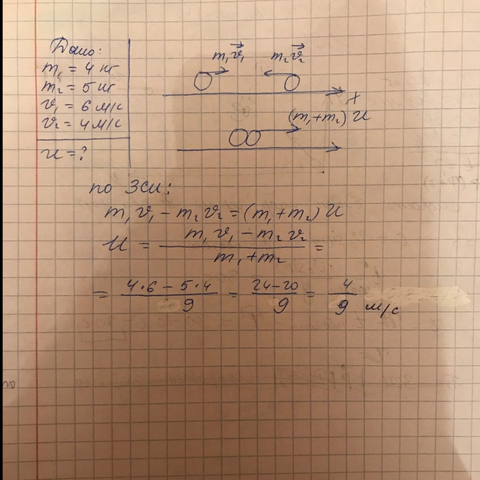 Дано:
m₁ = 4 кг
m₂ = 5 кг
v₁ = 6 м/с
v₂ = 4 м/с
u = ?
m₁v⃗₁ m₂v⃗₂
x
(m₁+m₂) u
по ЗСИ:
m₁v₁ − m₂v₂ = (m₁+m₂) u
u = (m₁v₁ − m₂v₂)/(m₁+m₂) =
= (4·6 − 5·4)/9 = (24−20)/9 = 4/9 м/с